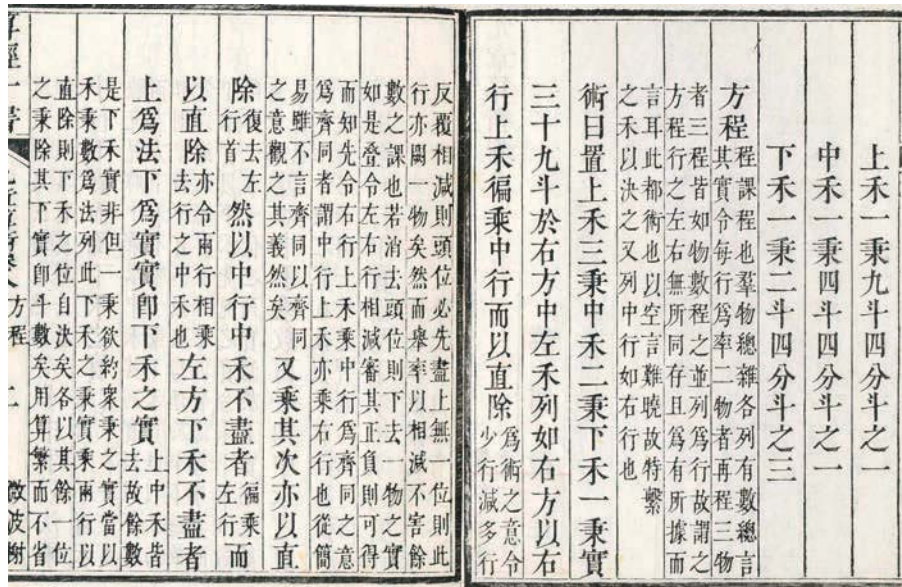 上禾一秉九斗四分斗之一
中禾一秉四斗四分斗之一
下禾一秉二斗四分斗之三
方程程課程也羣物總雜各列有數總言
其實令每行爲率二物者再程三物
者三程皆如物數程之並列爲行故謂之
方程行之左右無所同存且爲有所據而
言耳此都術也以空言難曉故特繫
之禾以決之又列中行如右行也
術曰置上禾三秉中禾二秉下禾一秉實
三十九斗於右方中左禾列如右方以右
行上禾徧乘中行而以直除爲術之意令少行減多行
反覆相減則頭位必先盡上無一位則此
行亦闕一物矣然而舉率以相減不害餘
數之課也若消去頭位則下去一物之實
如是疊令左右行相減審其正負則可得
而知先令右行上禾乘中行爲齊同之意
爲齊同者謂中行上禾亦乘右行也從簡
易雖不言齊同以齊同
之意觀之其義然矣又乘其次亦以直
除復去左行首然以中行中禾不盡者徧乘左行而
以直除亦令兩行相乘去行之中禾也左方下禾不盡者
上爲法下爲實實卽下禾之實上中禾皆去故餘數
是下禾實非但一秉欲約衆秉之實當以
禾秉數爲法列此下禾之秉實乘兩行以
直除則下禾之位自決矣各以其餘一位
之乘除其下實卽斗數矣用算繁而不省
方程 二 微波榭